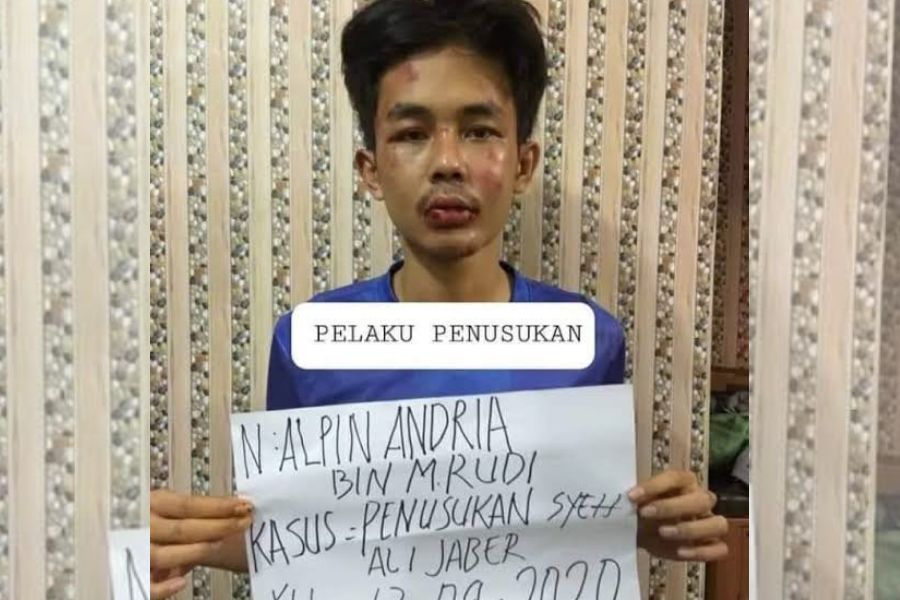 PELAKU PENUSUKAN
N : ALPIN ANDRIA
BIN M. RUDI
KASUS = PENUSUKAN SYEH
ALI JABER
13-09-2020